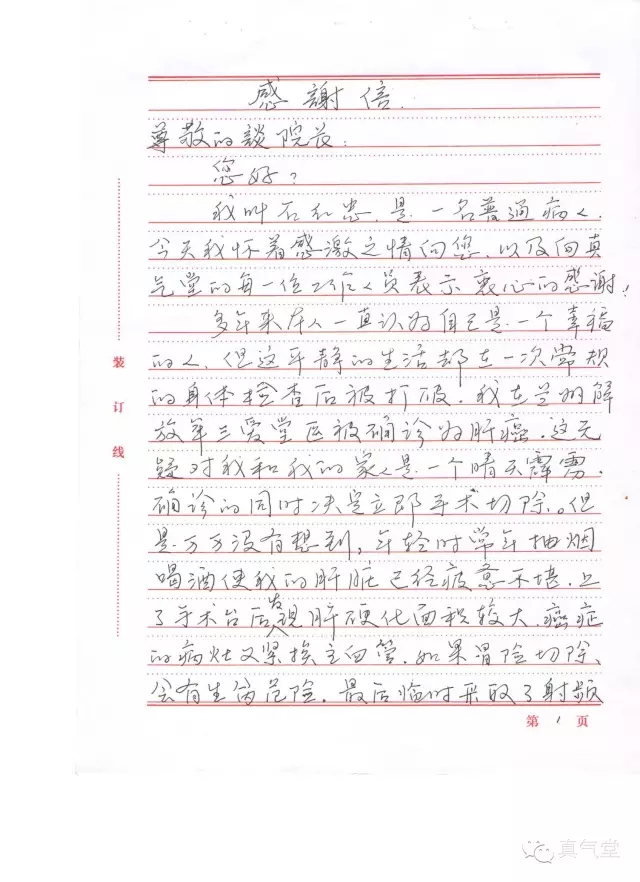 感謝信.
尊敬的談院长:
您好?
我叫石和忠.是一名普通病人.
今天我怀着感激之情向您.以及向真
气堂的每一位工作人员表示衷心的感谢!
多年来本人一直认为自己是一个幸福
的人.但这平静的生活却在一次常规
的身体检查后被打破.我在兰州解
放军三爱堂医被确诊为肝癌.这无
疑对我和我的家人是一个晴天霹雳.
确诊的同时决定立即手术切除.。但
是万万没有想到,年轻时常年抽烟
喝酒使我的肝脏已经疲惫不堪.上
了手术台后发现肝硬化面积较大 癌症
的病灶又紧挨主血管.如果冒险切除、
会有生命危险.最后临时采取了射频
装订线
第 1 页
真气堂